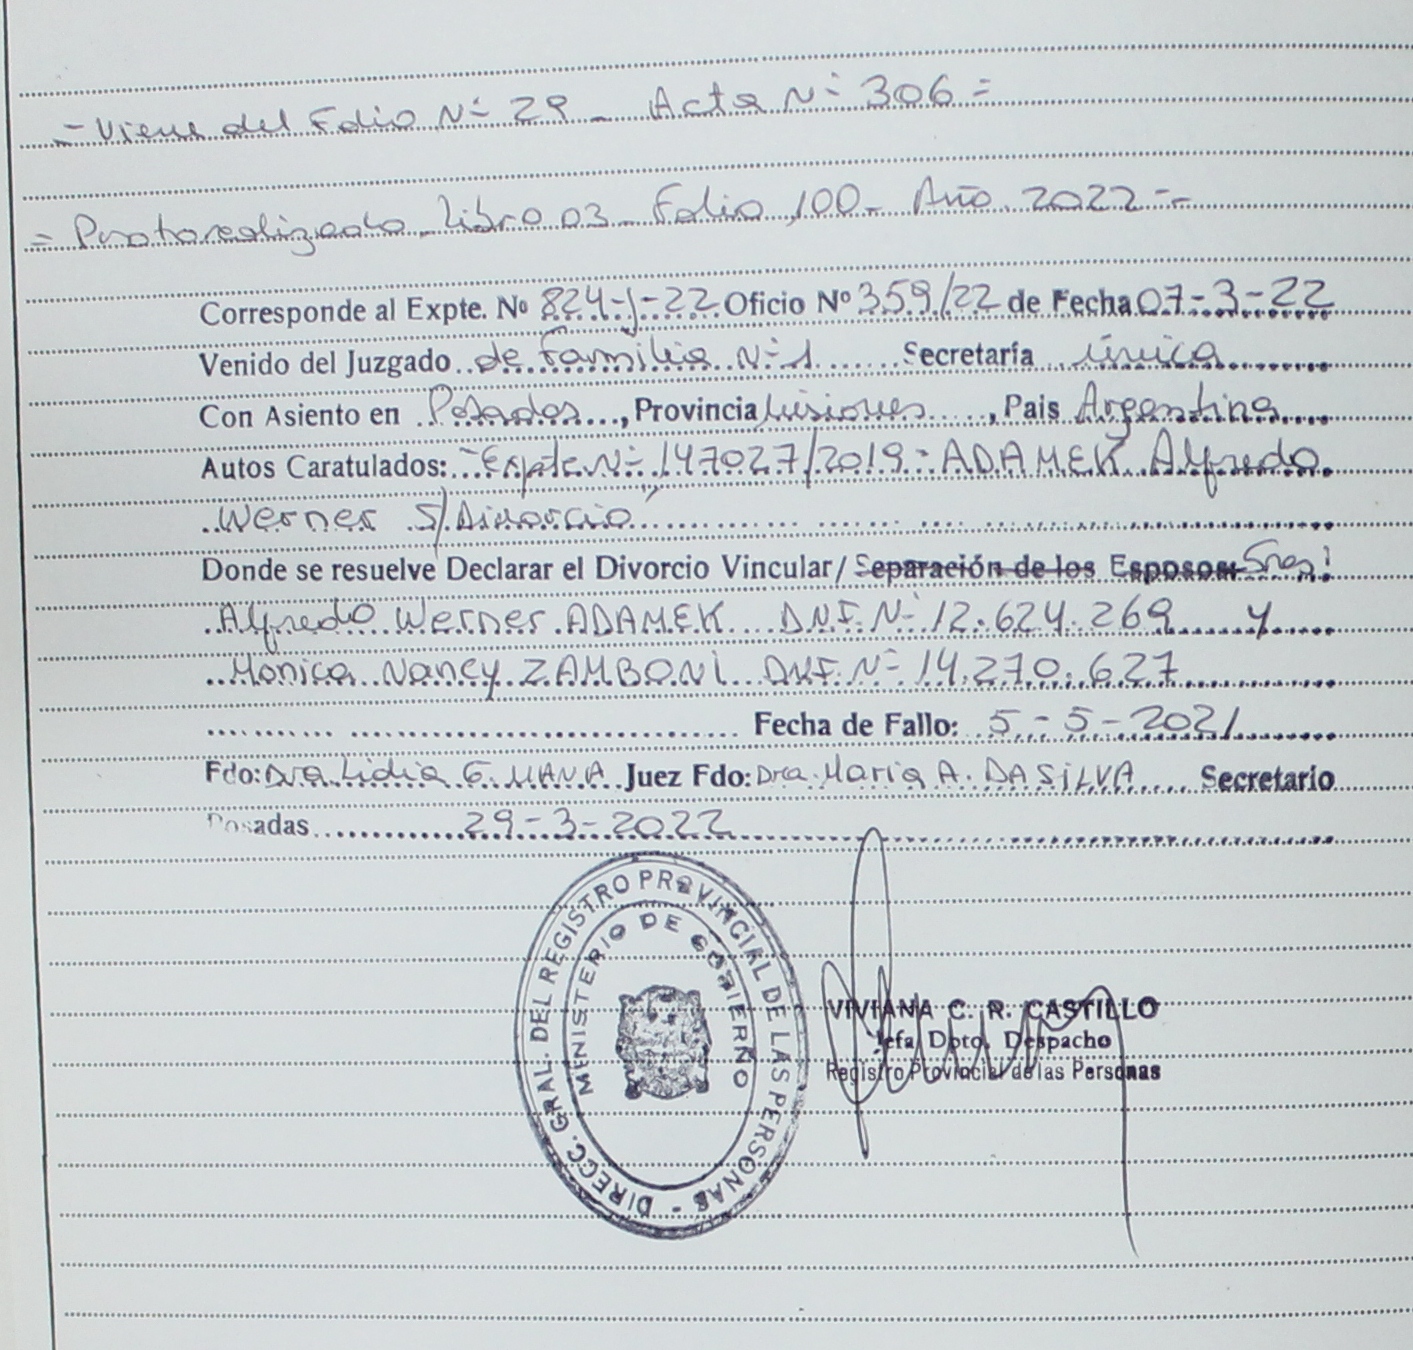 = Viene del Folio Nº 29 - Acta Nº 306 =
= Protocolizado - Libro 03 - Folio 100 - Año 2022 =-
Corresponde al Expte. Nº 824-J-22 Oficio Nº 359/22 de Fecha 07-3-22
Venido del Juzgado de Familia Nº 1 Secretaría única
Con Asiento en Posadas, Provincia Misiones, Pais Argentina
Autos Caratulados: "Expte Nº 147027/2019 - ADAMEK Alfredo
Werner S/Divorcio"
Donde se resuelve Declarar el Divorcio Vincular/ Separación de los Esposos: Sres:
Alfredo Werner ADAMEK DNI Nº 12.624.269 y
Monica Nancy ZAMBONI DNI Nº 14.270.627
Fecha de Fallo: 5-5-2021
Fdo: Dra Lidia G. MANA Juez Fdo: Dra. Maria A. DA SILVA Secretario
Posadas 29-3-2022
DIRECC. GRAL. DEL REGISTRO PROVINCIAL DE LAS PERSONAS -
MINISTERIO DE GOBIERNO
VIVIANA C. R. CASTILLO
Jefa Dpto. Despacho
Registro Provincial de las Personas